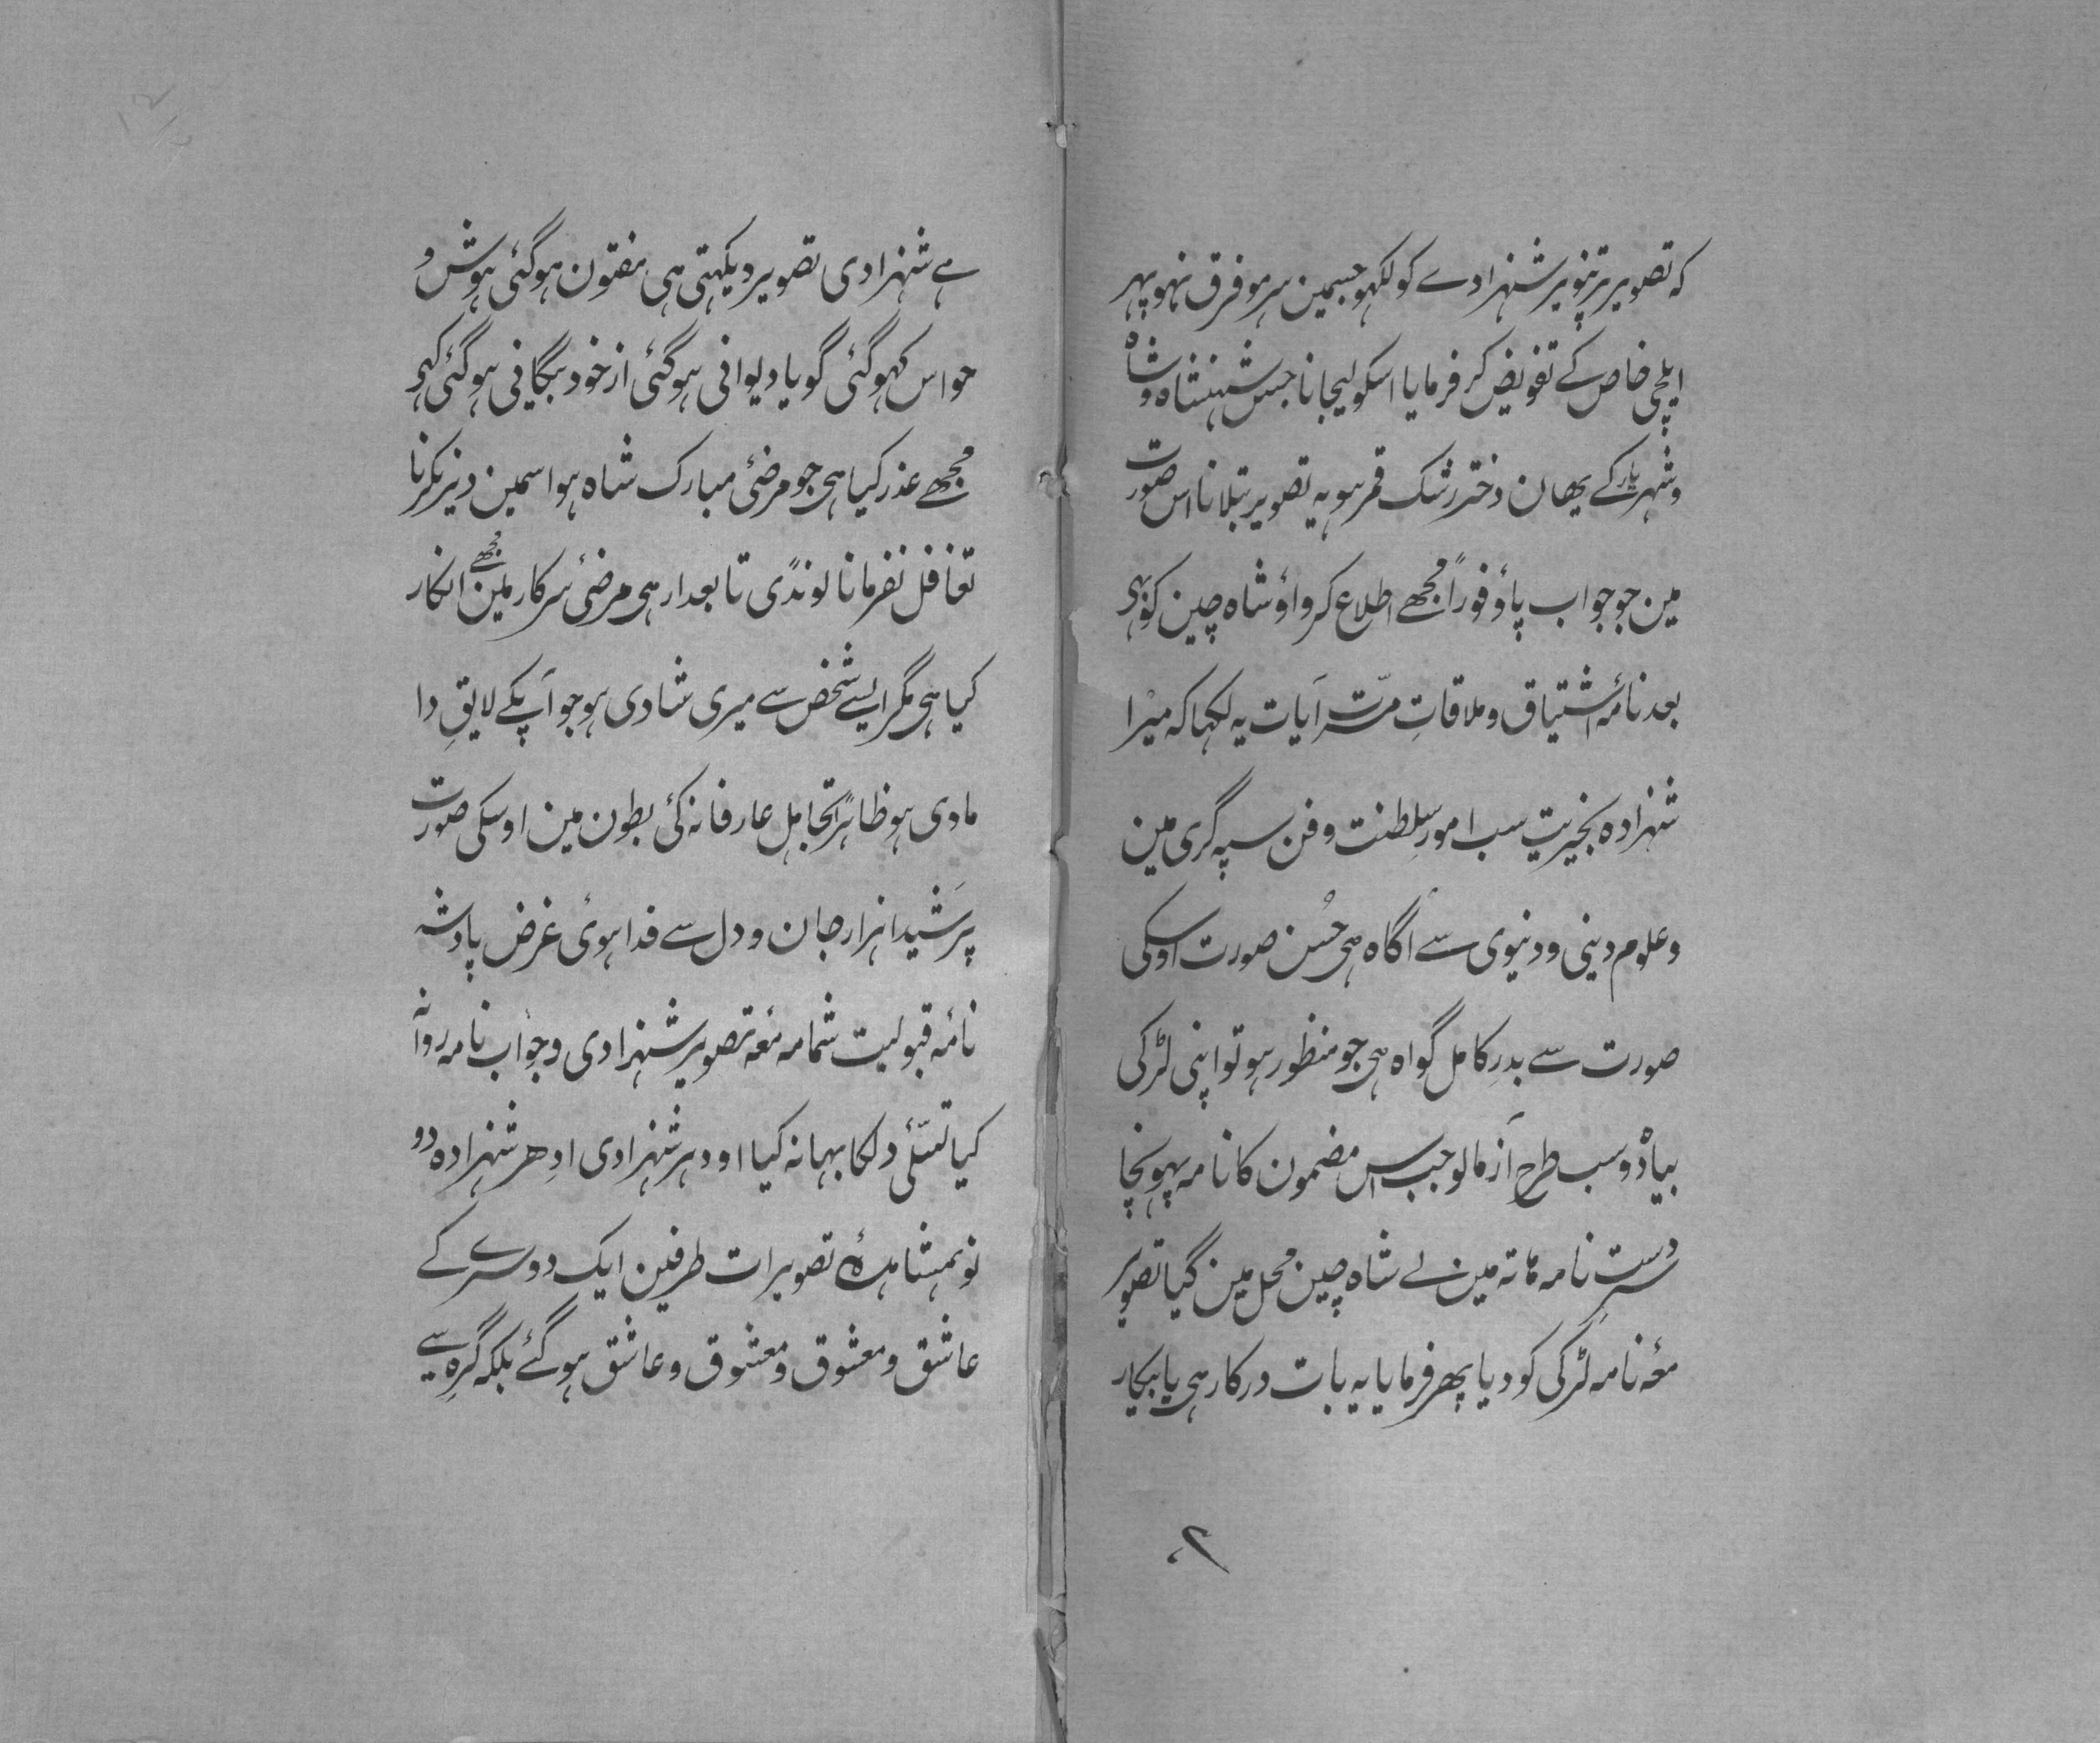 کہ تصویر پرتنویر شہزادے کو لکہو جسمین سرمو فرق نہو پہر
ایلچی خاص کے تفویض کر فرمایا اسکو لیجانا جس شہنشاہ و شاہ
و شہریار کے یہان دختر رشک قمر ہو یہ تصویر بتلانا اس صورت
مین جو جواب پاؤ فوراً مجھے اطلاع کرواؤ شاہ چین کو بہی
بعد نامۂ اشتیاق و ملاقاتِ مسرّت آیات یہ لکہا کہ میرا
شہزادہ بخیریت سب امور سلطنت و فن سپہ گری مین
و علوم دینی و دنیوی سے آگاہ ہی حُسن صورت اوسکی
صورت سے بدرِ کامل گواہ ہی جو منظور ہو تو اپنی لڑکی
بیاہ دو سب طرح آزمالو جب اس مضمون کا نامہ پہونچا
دست نامہ ہاتہ مین لے شاہ چین محل مین گیا تصویر
معۂ نامہ لڑکی کو دیا پھر فرمایا یہ بات درکار ہی یا بیکار
ہے شہزادی تصویر دیکہتی ہی مفتون ہوگئی ہوش و
حواس کہوگئی گویا دیوانی ہوگئی از خود بیگانی ہوگئی کہی
مجھے عذر کیا ہی جو مرضئ مبارک شاہ ہو اسمین دیر نکرنا
تغافل نفرمانا لونڈی تابعدار ہی مرضئ سرکار مین مجھے انکار
کیا ہی مگر ایسے شخص سے میری شادی ہو جو آپکے لایقِ دا
مادی ہو ظاہراً تجاہل عارفانہ کئ بطون مین اوسکی صورت
پر شیدا ہزار جان و دل سے فدا ہوئ غرض پادشہ
نامۂ قبولیت شمامہ معۂ تصویر شہزادی و جواب نامہ روانہ
کیا تسّلئ دلکا بہانہ کیا اودہر شہزادی ادھر شہزادہ دو
نو بمشاہدۂ تصویرات طرفین ایک دوسرے کے
عاشق و معشوق و معشوق و عاشق ہوگئے بلکہ گرہ سے
۲